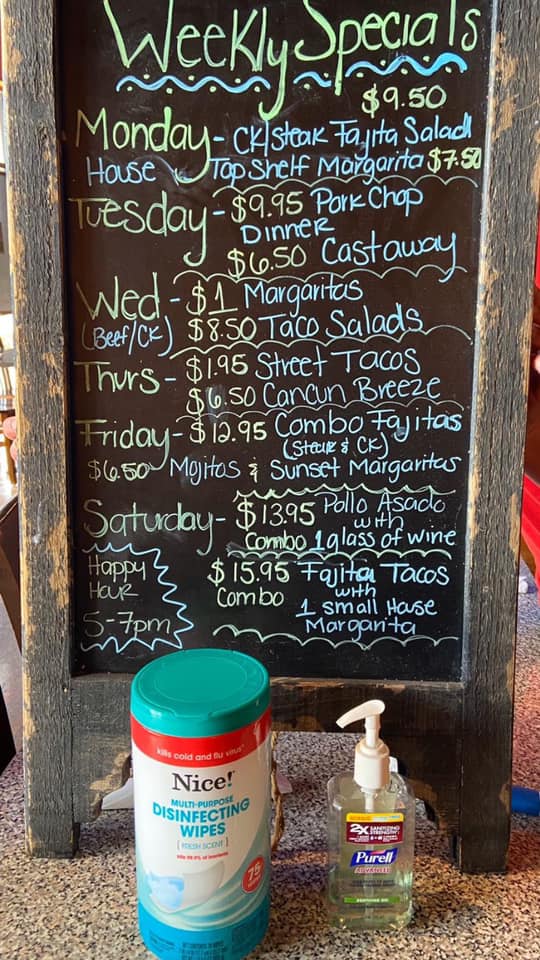 Weekly Specials
$9.50
Monday - CK/steak Fajita Salad
House Top Shelf Margarita $7.50
Tuesday - $9.95 Pork Chop
Dinner
$6.50 Castaway
Wed - $1 Margaritas
(Beef/CK) $8.50 Taco Salads
Thurs - $1.95 Street Tacos
$6.50 Cancun Breeze
Friday - $12.95 Combo Fajitas
(Steak & CK)
$6.50 Mojitos & Sunset Margaritas
Saturday - $13.95 Pollo Asado
with
Combo 1 glass of wine
Happy
Hour
5-7pm
$15.95 Fajita Tacos
Combo with
1 small House
Margarita
kills cold and flu virus*
Nice!
MULTI-PURPOSE
DISINFECTING
WIPES
[FRESH SCENT]
75
2X SANITIZING
STRENGTH
Purell
ADVANCED